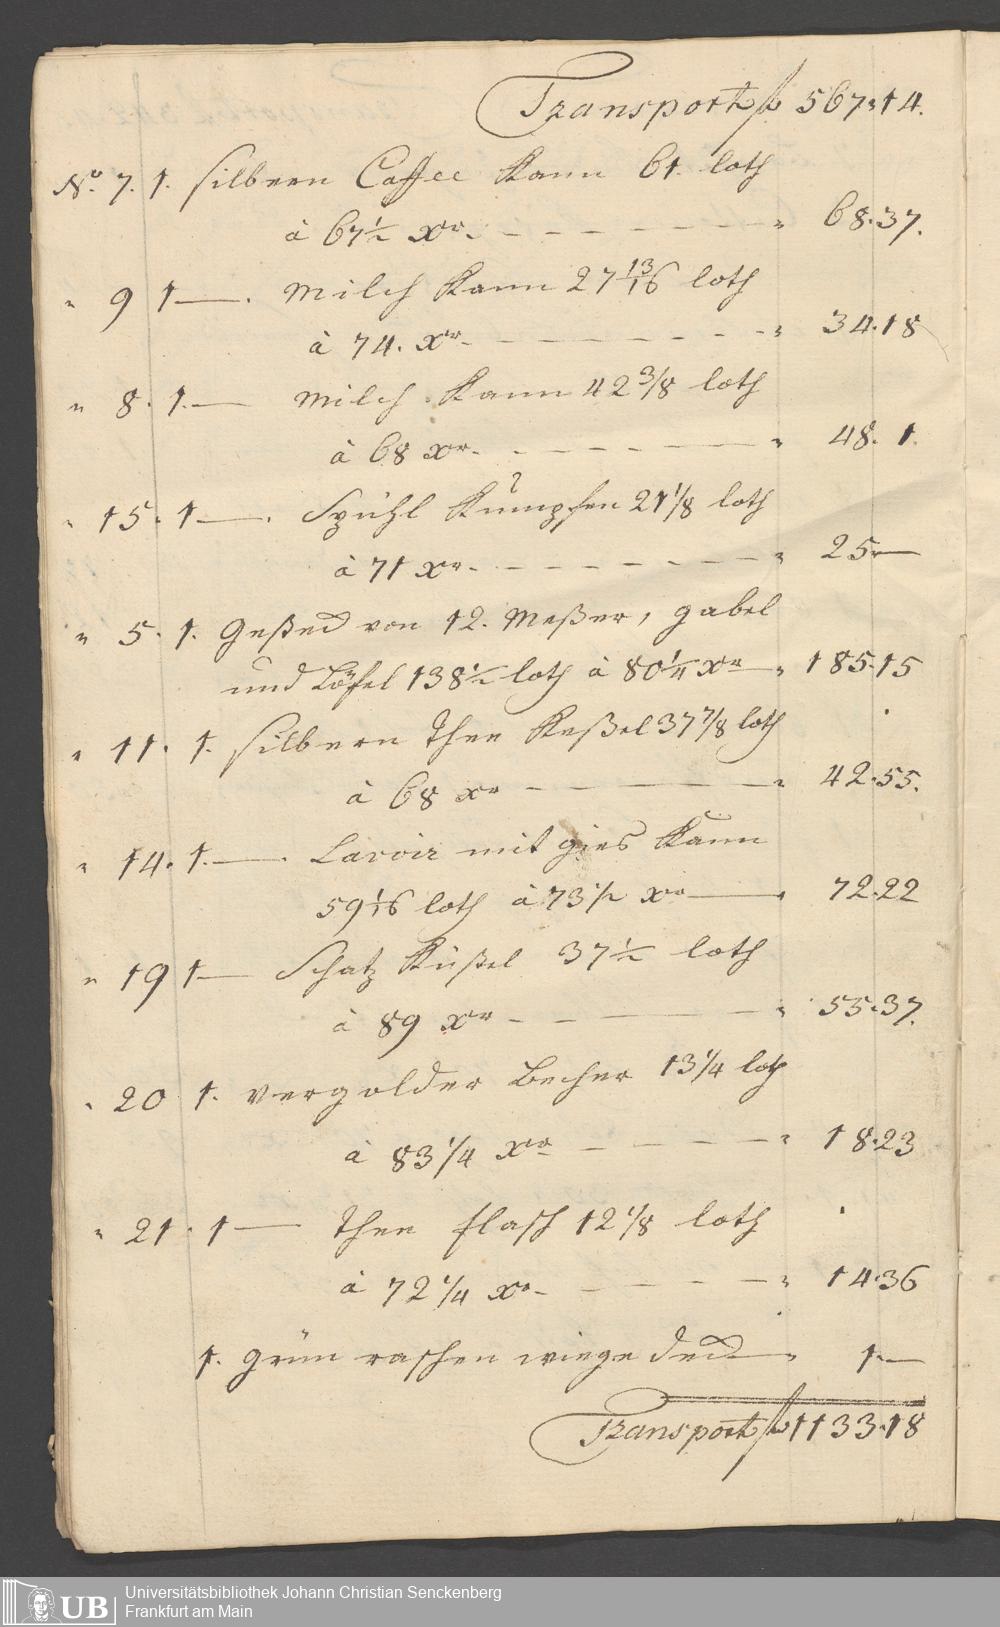 Transport f 567„14.
No. 7. 1. silbern Caffee Kann 61. loth
à 67½ xr. „ 68.37.
„ 9 1 —. Milch Kann 27 13/16 loth
à 74. xr. „ 34.18
„ 8. 1. — Milch Kann 42 3/8 loth
à 68 xr. „ 48. 1.
„ 15. 1 —. Spühl Kumpfen 21 1/8 loth
à 71 xr. „ 25 —
„ 5. 1. Besteck von 12. Meßer, gabel
und Löfel 138½ loth à 80¼ xr — „ 185.15
„ 11. 1. silbern Thee Keßel 37 7/8 loth
à 68 xr „ 42.55.
„ 14. 1. —. Lavoir mit gies Kann
59 1/16 loth à 73½ xr — „ 72.22
„ 19 1 — Schatz Küstel 37½ loth
à 89 xr „ 55.37.
„ 20 1. vergolder Becher 13¼ loth
à 83¼ xr „ 18.23
„ 21. 1 — Thee flasch 12 1/8 loth
à 72¼ xr „ 14.36
1. grün raschen wiege deck „ 1. —
Transport f 1133.18
UB Universitätsbibliothek Johann Christian Senckenberg
Frankfurt am Main